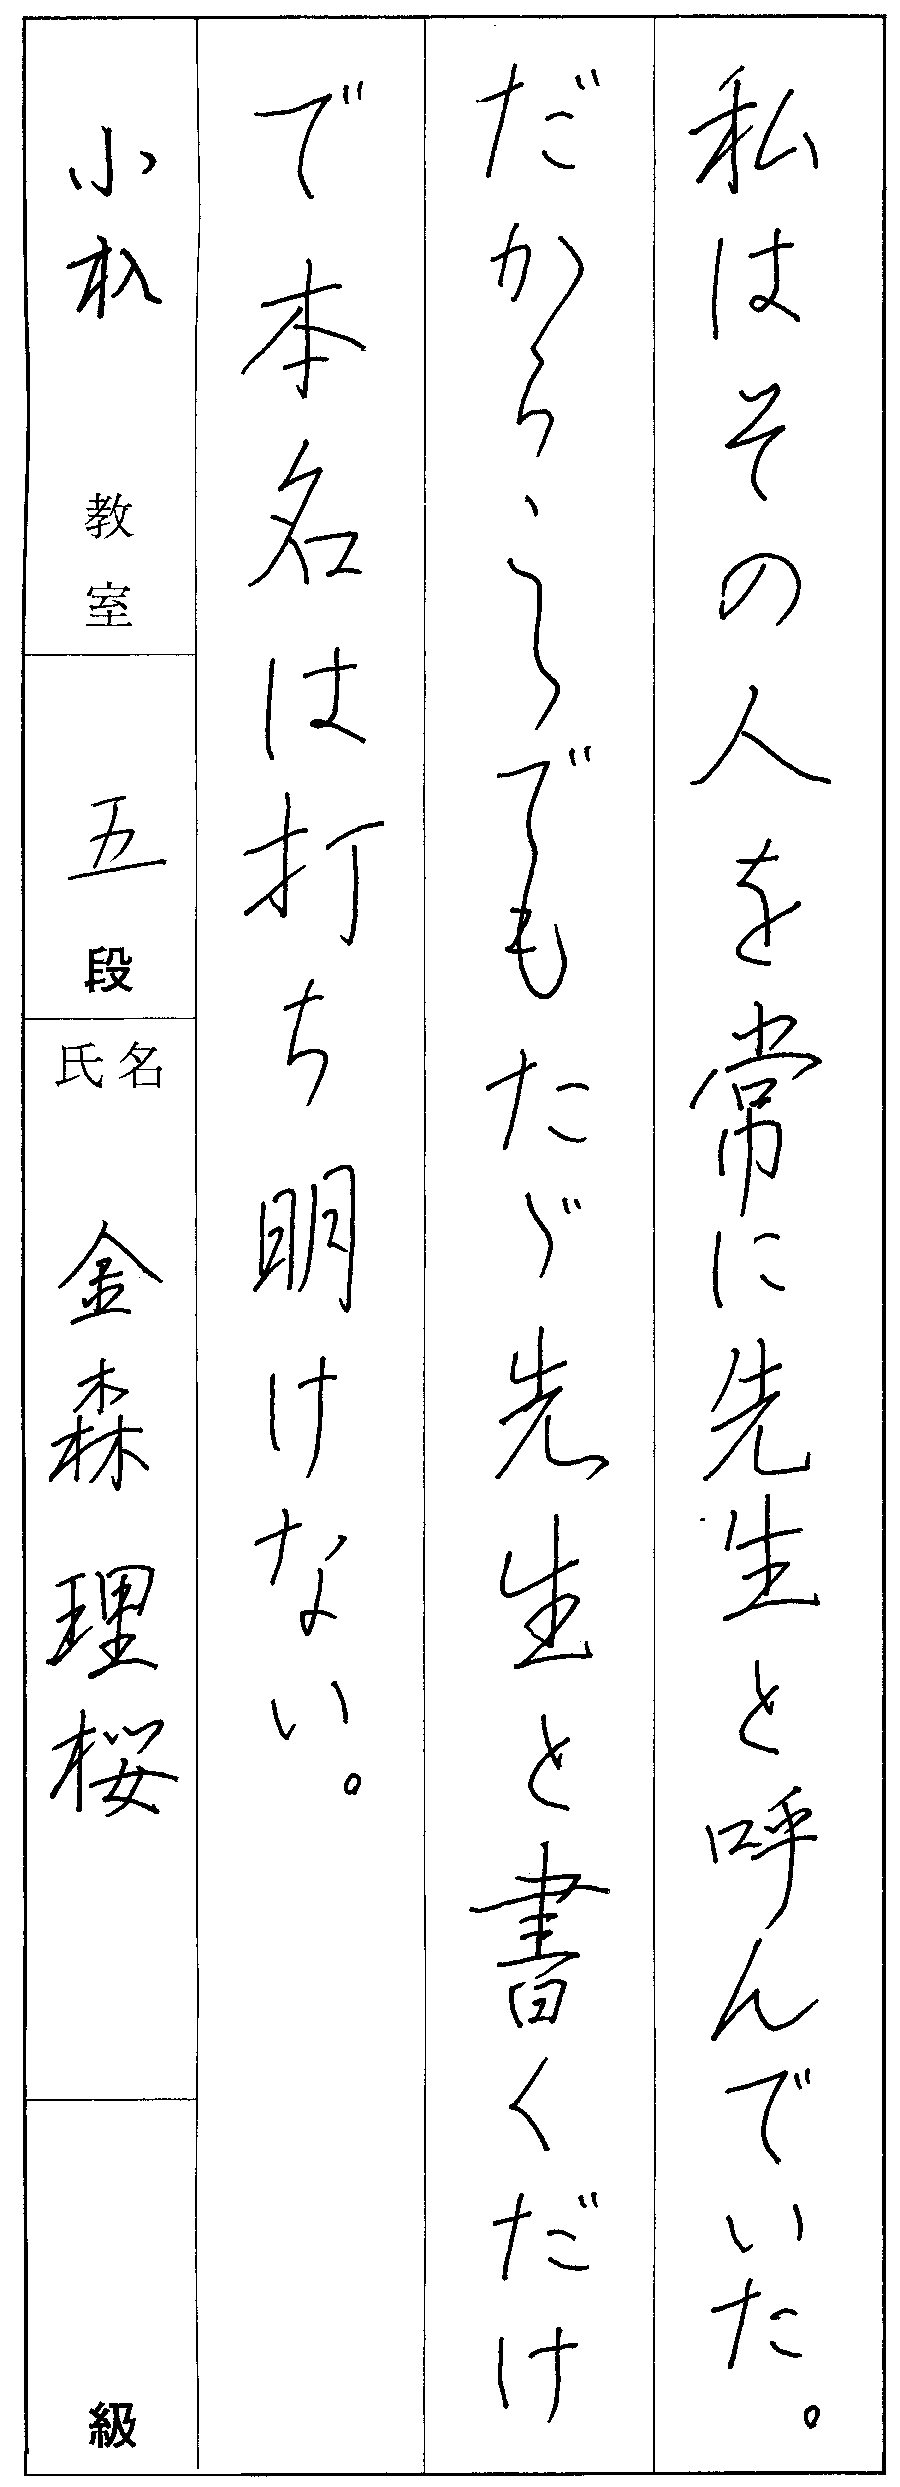 私はその人を常に先生と呼んでいた。
だからこゝでもたゞ先生と書くだけ
で本名は打ち明けない。
小杁 教室
五 段
氏名 金森理桜
級